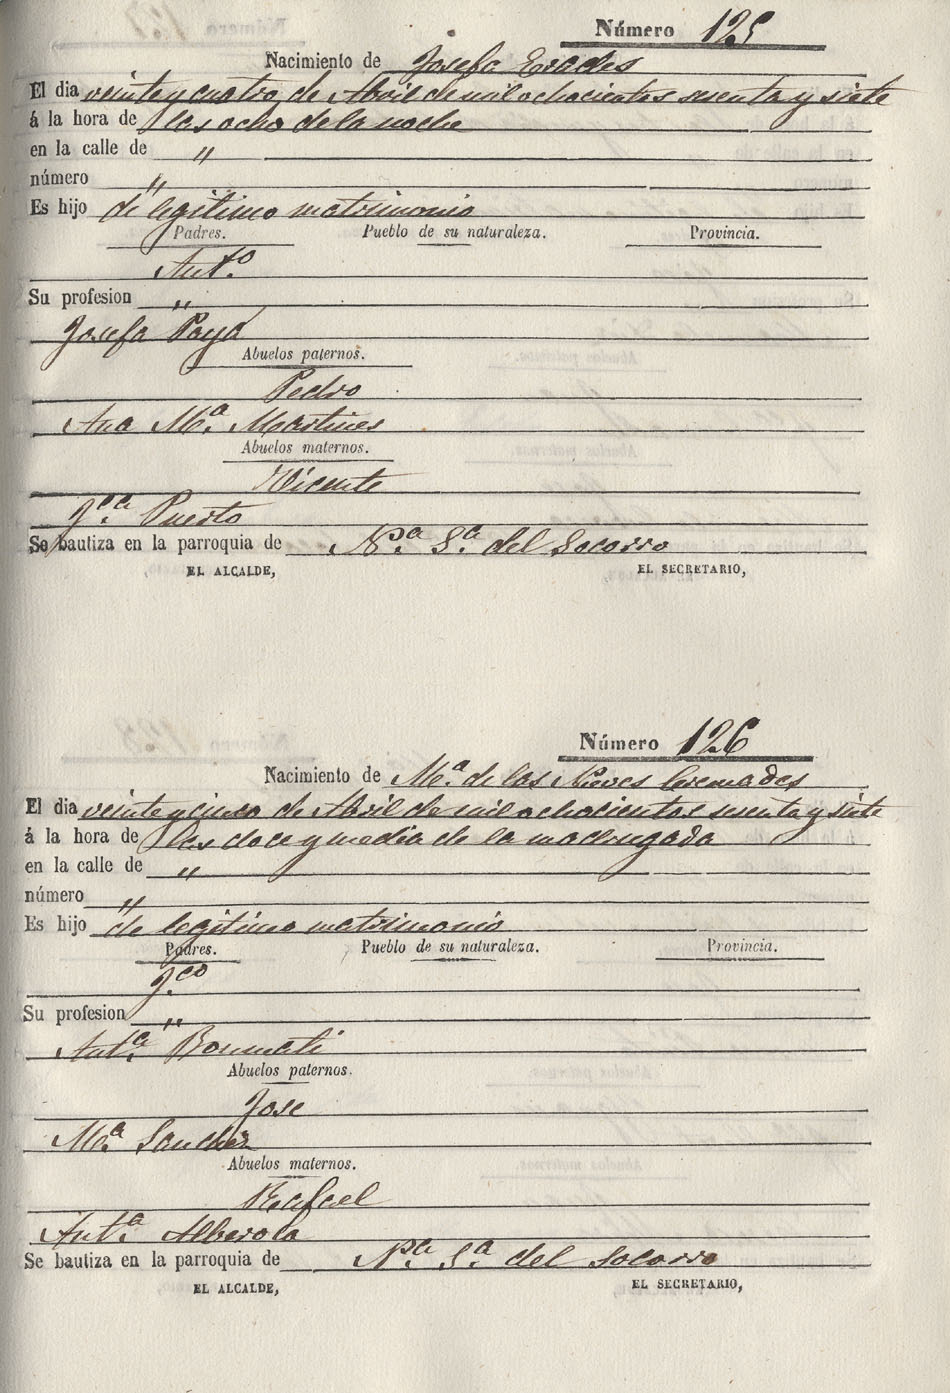 Número 125
Nacimiento de Josefa Erades
El dia veinte y cuatro de Abril de mil ochocientos sesenta y siete
á la hora de las ocho de la noche
en la calle de "
número "
Es hijo de legitimo matrimonio
Padres. Pueblo de su naturaleza. Provincia.
Antº
Su profesion "
Josefa Payá
Abuelos paternos.
Pedro
Ana Mª Martines
Abuelos maternos.
Vicente
Puerto
Se bautiza en la parroquia de Nª Sª del Socorro
EL ALCALDE, EL SECRETARIO,
Número 126
Nacimiento de Mª de las Nieves Cremades
El dia veinte y cinco de Abril de mil ochocientos sesenta y siete
á la hora de las doce y media de la madrugada
en la calle de "
número "
Es hijo de legitimo matrimonio
Padres. Pueblo de su naturaleza. Provincia.
Su profesion "
Antª Bonmati
Abuelos paternos.
Jose
Mª Sanchez
Abuelos maternos.
Rafael
Antª Alberola
Se bautiza en la parroquia de Nª Sª del Socorro
EL ALCALDE, EL SECRETARIO,